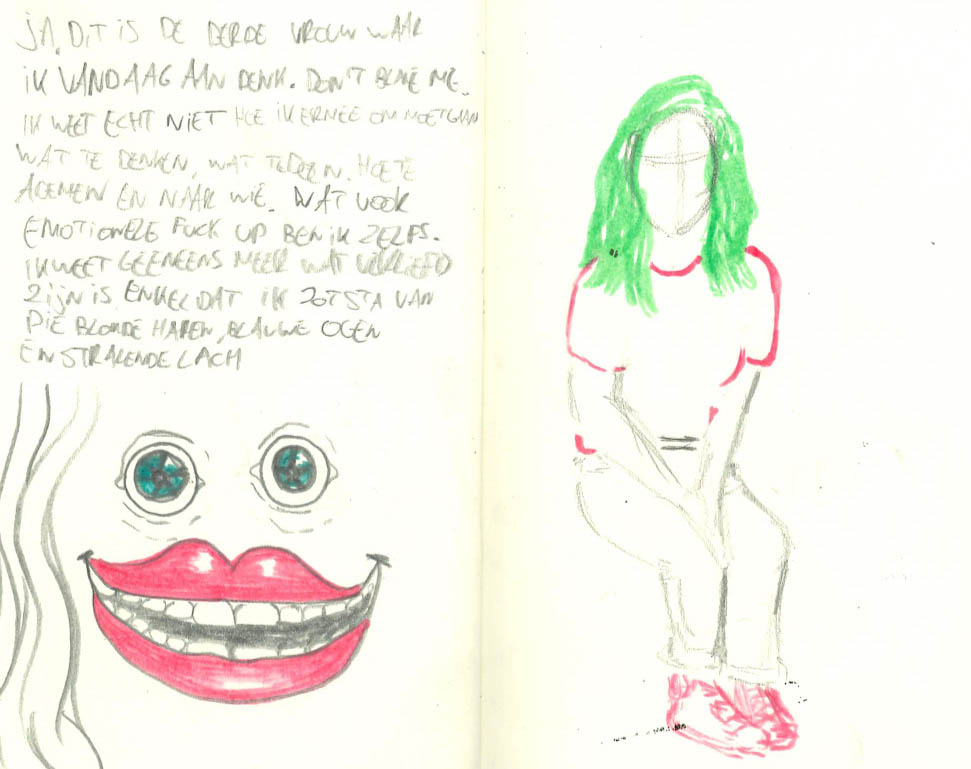 JA, DIT IS DE DERDE VROUW WAAR
IK VANDAAG AAN DENK. DON'T BLAME ME.
IK WEET ECHT NIET HOE IK ERMEE OM MOET GAAN
WAT TE DENKEN, WAT TE DOEN. HOE TE
ADEMEN EN NAAR WIE. WAT VOOR
EMOTIONELE FUCK UP BEN IK ZELFS.
IK WEET GEENEENS MEER WAT VERLIEFD
ZIJN IS. ENKEL DAT IK ZOT STA VAN
DIE BLONDE HAREN, BLAUWE OGEN
EN STRALENDE LACH